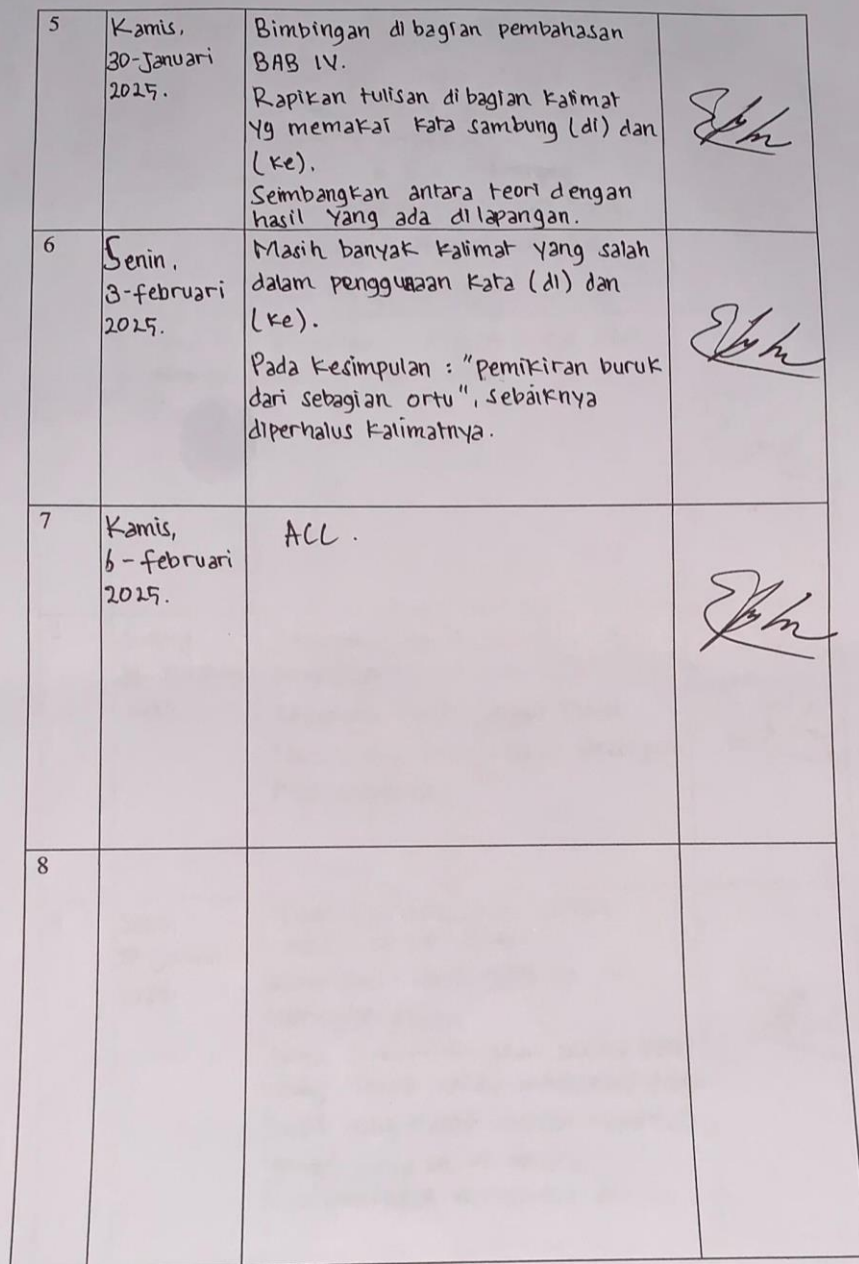 5
Kamis,
30-Januari
2025.
Bimbingan di bagian pembahasan
BAB IV.
Rapikan tulisan di bagian kalimat
yg memakai kata sambung (di) dan
(ke).
Seimbangkan antara teori dengan
hasil yang ada di lapangan.
6
Senin,
3-februari
2025.
Masih banyak kalimat yang salah
dalam penggunaan kata (di) dan
(ke).
Pada kesimpulan : "pemikiran buruk
dari sebagian ortu", sebaiknya
diperhalus kalimatnya.
7
Kamis,
6-februari
2025.
ACC.
8